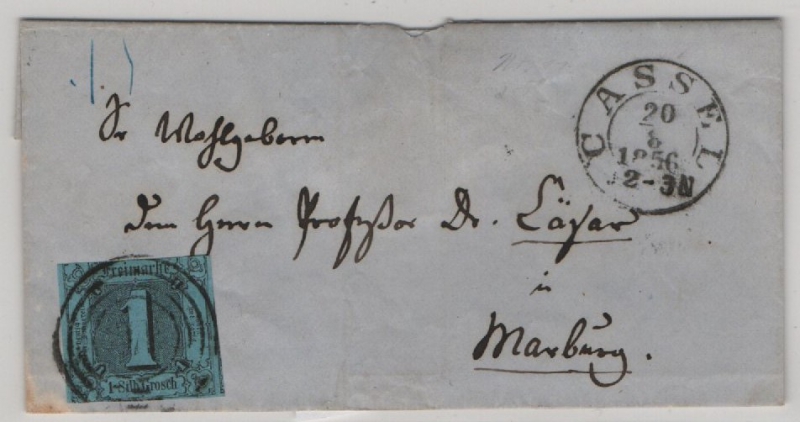 CASSEL
20
8
1856
2-3N
Sr Wohlgeboren
dem Herrn Professor Dr. Cäsar
in
Marburg.
Freimarke
1
1 Silb. Grosch